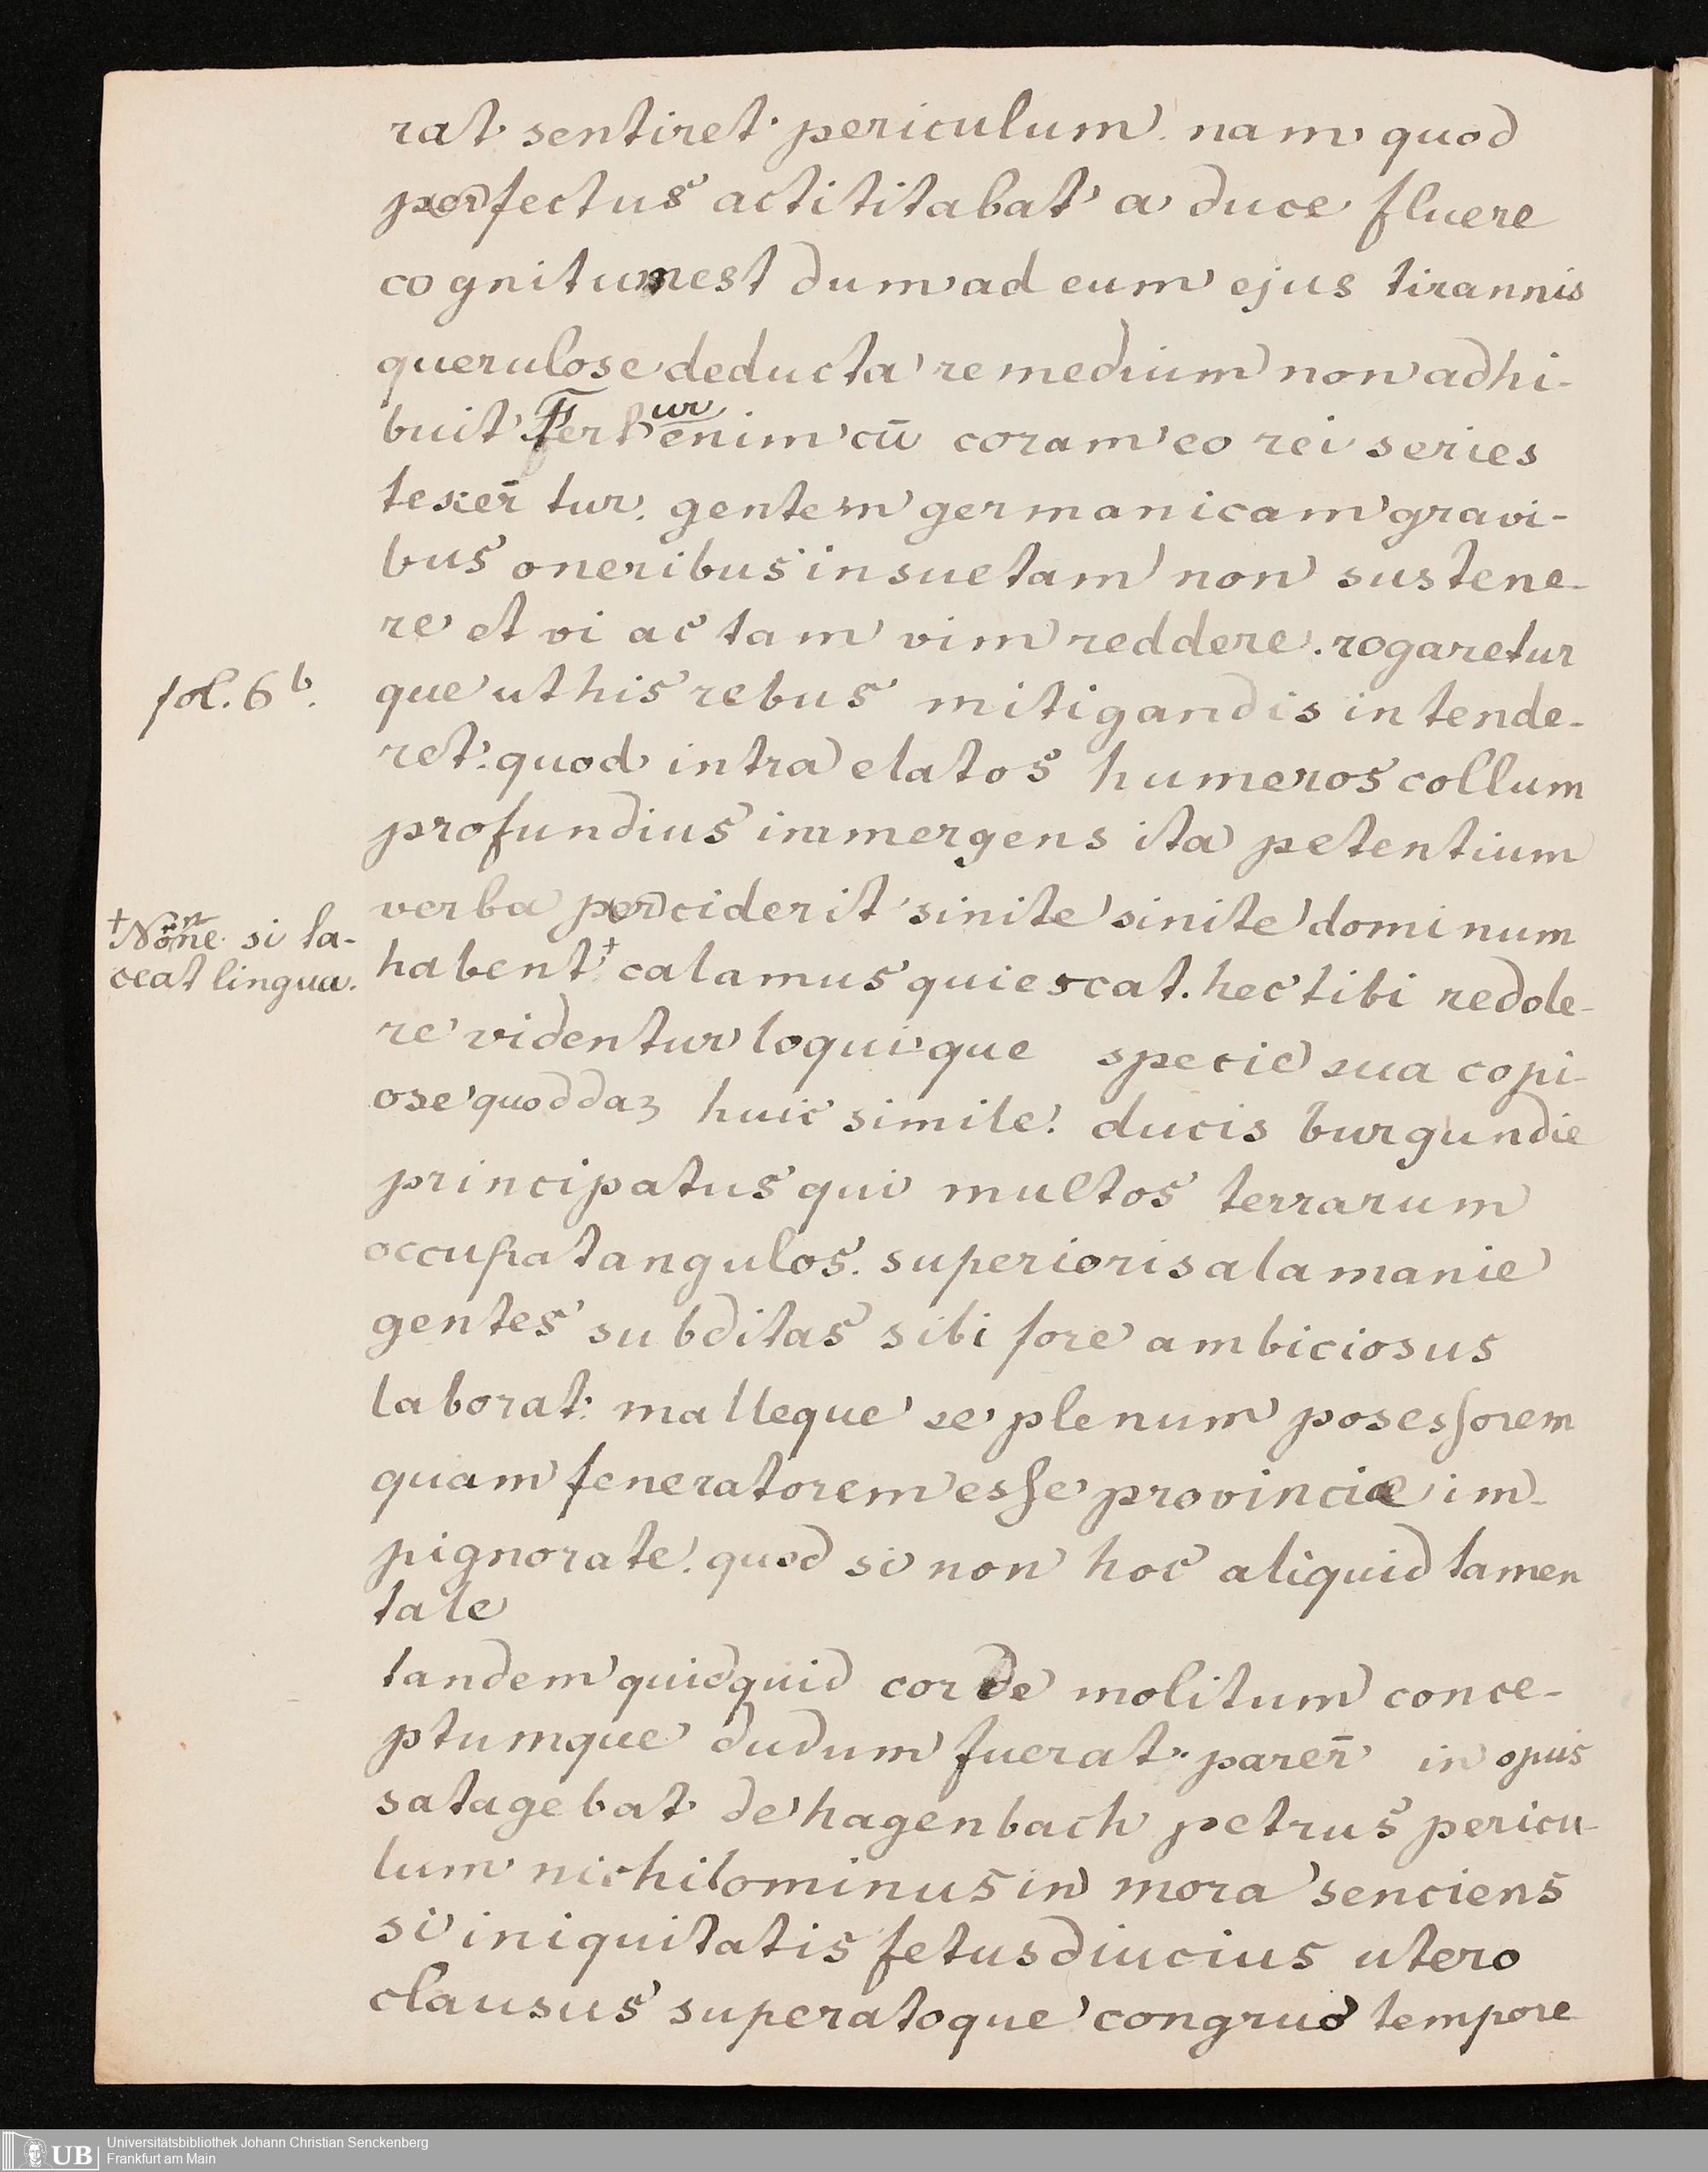 rat sentiret periculum. nam quod
perfectus actititabat a duce fluere
cognitumest dum ad eum ejus tirannis
querulose deducta remedium non adhi-
buit Fertur enim cū coram eo rei series
texer̄ tur. gentem germanicam gravi-
bus oneribus insuetam non sustene-
re et vi ac tam vim reddere. rogaretur
fol. 6 b.
que ut his rebus mitigandis intende-
ret: quod intra elatos humeros collum
profundius immergens ita petentium
verba perciderit sinite sinite dominum
+ si ta-
ceat lingua.
habent + calamus quiescat. hec tibi redole-
re videntur loquique specie sua copi-
ose quoddaz huic simile. ducis burgundie
principatus qui multos terrarum
occupat angulos. superioris alamanie
gentes subditas sibi fore ambiciosus
laborat: malleque se plenum posessorem
quam feneratorem esse provincie im-
pignorate. quod si non hoc aliquid tamen
tale
tandem quidquid corde molitum conce-
ptumque dudum fuerat. parer̄ in opus
satagebat de hagenbach petrus pericu-
lum nichilominus in mora senciens
si iniquitatis fetus diucius utero
clausus superatoque congruo tempore
UB
Universitätsbibliothek Johann Christian Senckenberg
Frankfurt am Main